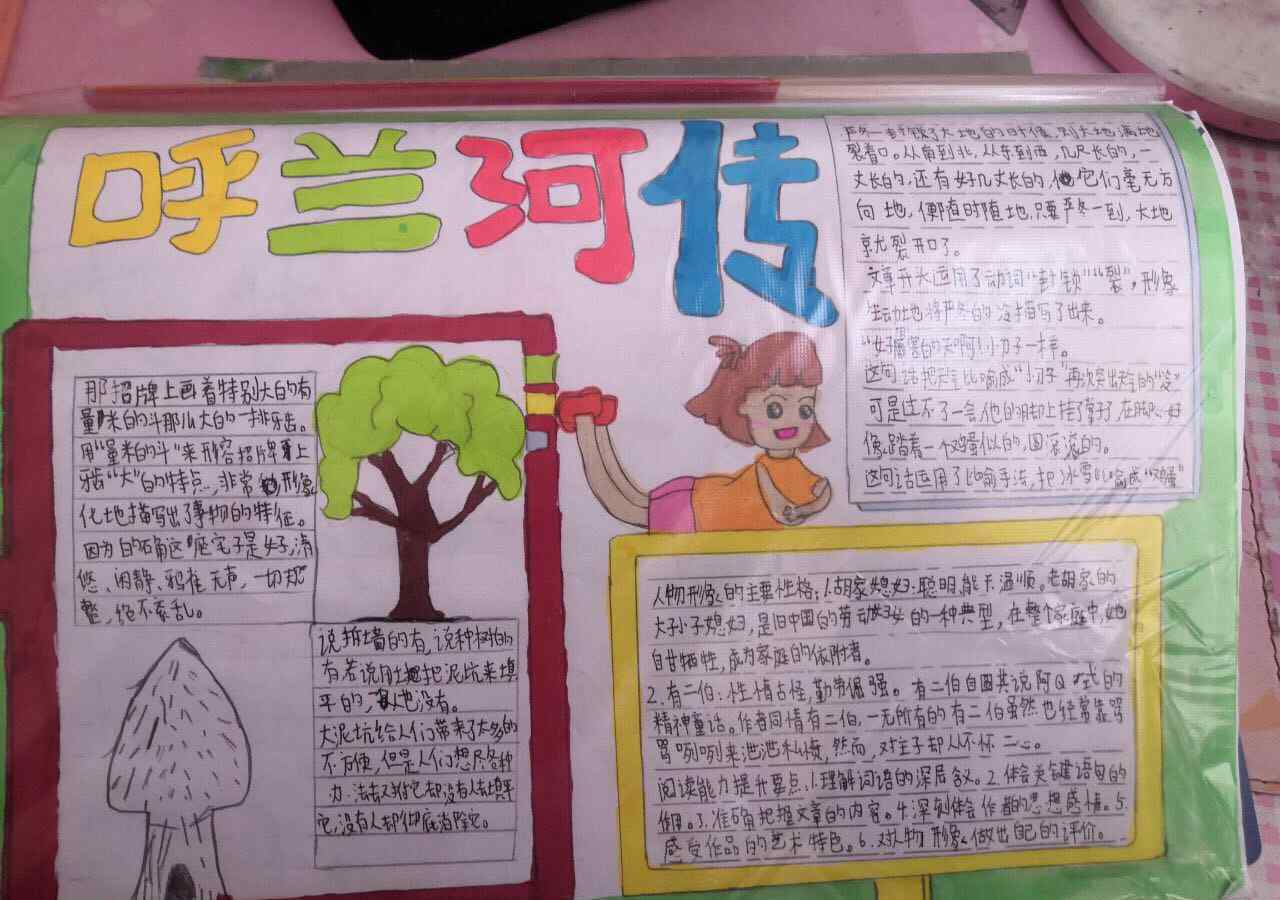 呼兰河传
严冬一封锁了大地的时候,则大地满地
裂着口。从南到北,从东到西,几尺长的,一
丈长的,还有好几丈长的,它们毫无方
向地,便随时随地,只要严冬一到,大地
就裂开口了。
文章开头运用了动词“封锁”“裂”,形象
生动地将严冬的冷描写了出来。
“好厉害的天啊!小刀子一样。
这句话把天气比喻成“小刀子”再次突出天气的“冷”
可是过不了一会,他的脚上挂了掌子,在脚心好
像踏着一个鸡蛋似的,圆滚滚的。
这句话运用了比喻手法,把冰雪比喻成“鸡蛋”
那招牌上画着特别大的有
量米的斗那么大的一排牙齿。
用“量米的斗”来形容招牌上
牙齿“大”的特点,非常形象
化地描写出了事物的特征。
因为白的石角这座宅子是好,清
悠、闲静、鸦雀无声,一切规
整,绝不紊乱。
说拆墙的有,说种树的
有若说用土把泥坑来填
平的,人也没有。
大泥坑给人们带来了太多的
不方便,但是人们想尽各种
办法去对待它却没有人去填平
它,没有人却彻底消除它。
人物形象的主要性格:1.胡家媳妇:聪明能干温顺。老胡家的
大孙子媳妇,是旧中国的劳动妇女的一种典型,在整个家庭中,她
自甘牺牲,成为家庭的依附者。
2.有二伯:性情古怪,勤劳倔强。有二伯自圆其说阿Q式的
精神童话。作者同情有二伯,一无所有的有二伯虽然也经常靠骂
骂咧咧来泄泄私愤,然而,对主子却从不怀二心。
阅读能力提升要点:1.理解词语的深层含义。2.体会关键语句的
作用。3.准确把握文章的内容。4.深刻体会作者的思想感情。5.
感受作品的艺术特色。6.对人物形象做出自己的评价。